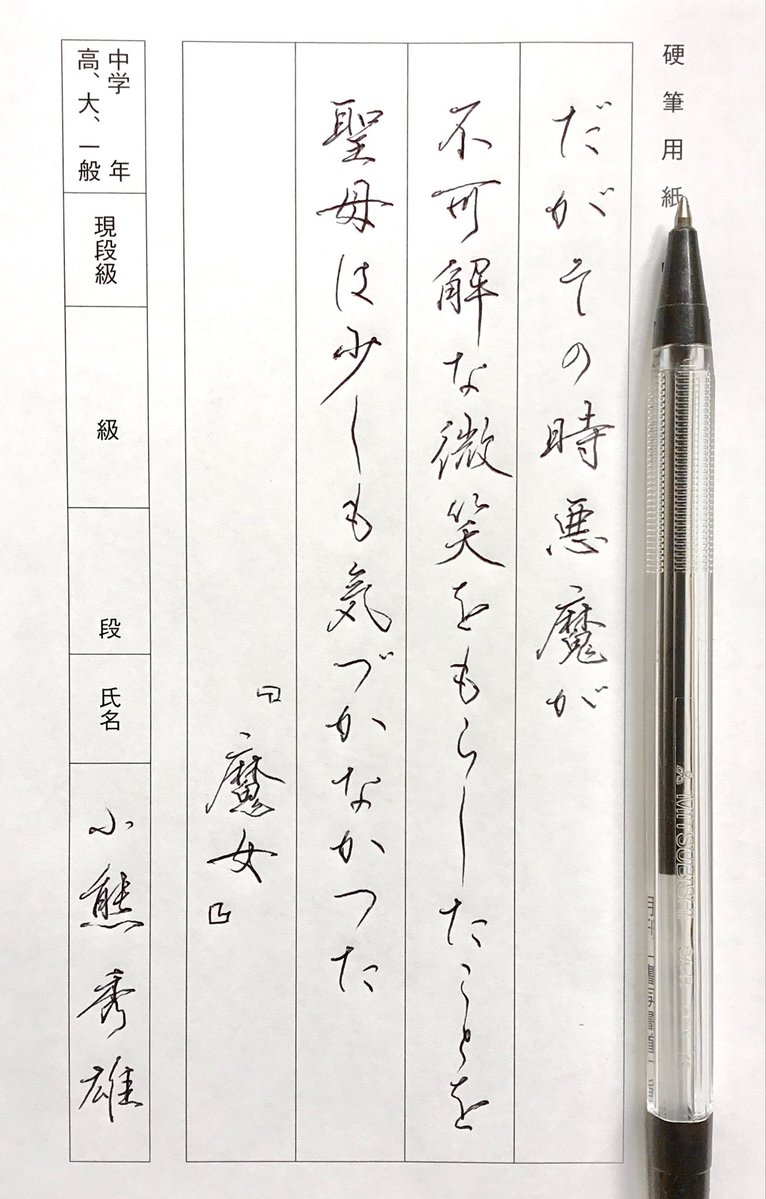 硬筆用紙
だがその時悪魔が
不可解な微笑をもらしたことを
聖母は少しも気づかなかつた
『魔女』
中学 年
高、大、一般
現段級
級
段
氏名
小熊秀雄
MITSUBISHI